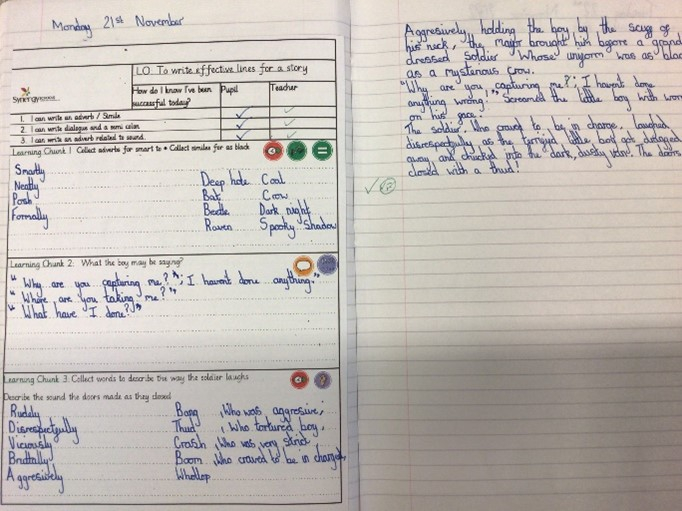 Monday 21st November
L.O. To write effective lines for a story
Synergy
How do I know I've been successful today? Pupil Teacher
1. I can write an adverb / Simile
2. I can write dialogue and a semi colon
3. I can write an adverb related to sound
Learning Chunk 1 Collect adverbs for smart to • Collect similes for as black
Smartly
Neatly Deep hole Coal
Posh Bat Crow
Formally Beetle Dark night
Raven Spooky Shadow
Learning Chunk 2: What the boy may be saying?
" Why are you capturing me?"; I havent done anything."
" Where are you taking me?"
" What have I done?"
Learning Chunk 3: Collect words to describe the way the soldier laughs
Describe the sound the doors made as they closed
Rudely Bang , Who was aggresive,
Disrespectfully Thud , Who tortured boy,
Viciously Crash , Who was very strict
Brutally Boom , Who craved to be in charge,
Aggresively Whollop
Aggresively holding the boy by the scuff of
his neck, the Major brought him before a grand
dressed soldier Whose uniform was as black
as a mysterious crow.
"Why are you, capturing me?"; I havent done
anything wrong." Screamed the little boy with
on his face.
The soldier, Who craved to be in charge, laughed
disrespectfully as the little boy got dragged
away and chucked into the dark, dusty van. The doors
closed with a thud!